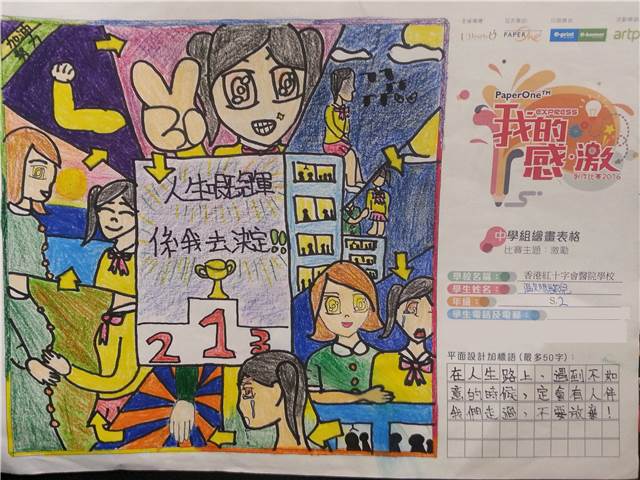 加油
努力
人生既冠軍
係我去決定!!
2 1 3
PAPER
e-print
artp
PaperOne™
EXPRESS
我的
感·激
創作比賽2016
中學組繪畫表格
比賽主題:激勵
學校名稱: 香港紅十字會醫院學校
學生姓名:
年級: S.2
學生電話及電郵:
平面設計加標語(最多50字):
在人生路上,遇到不如
意的時候,定會有人伴
我們走過,不要放棄!